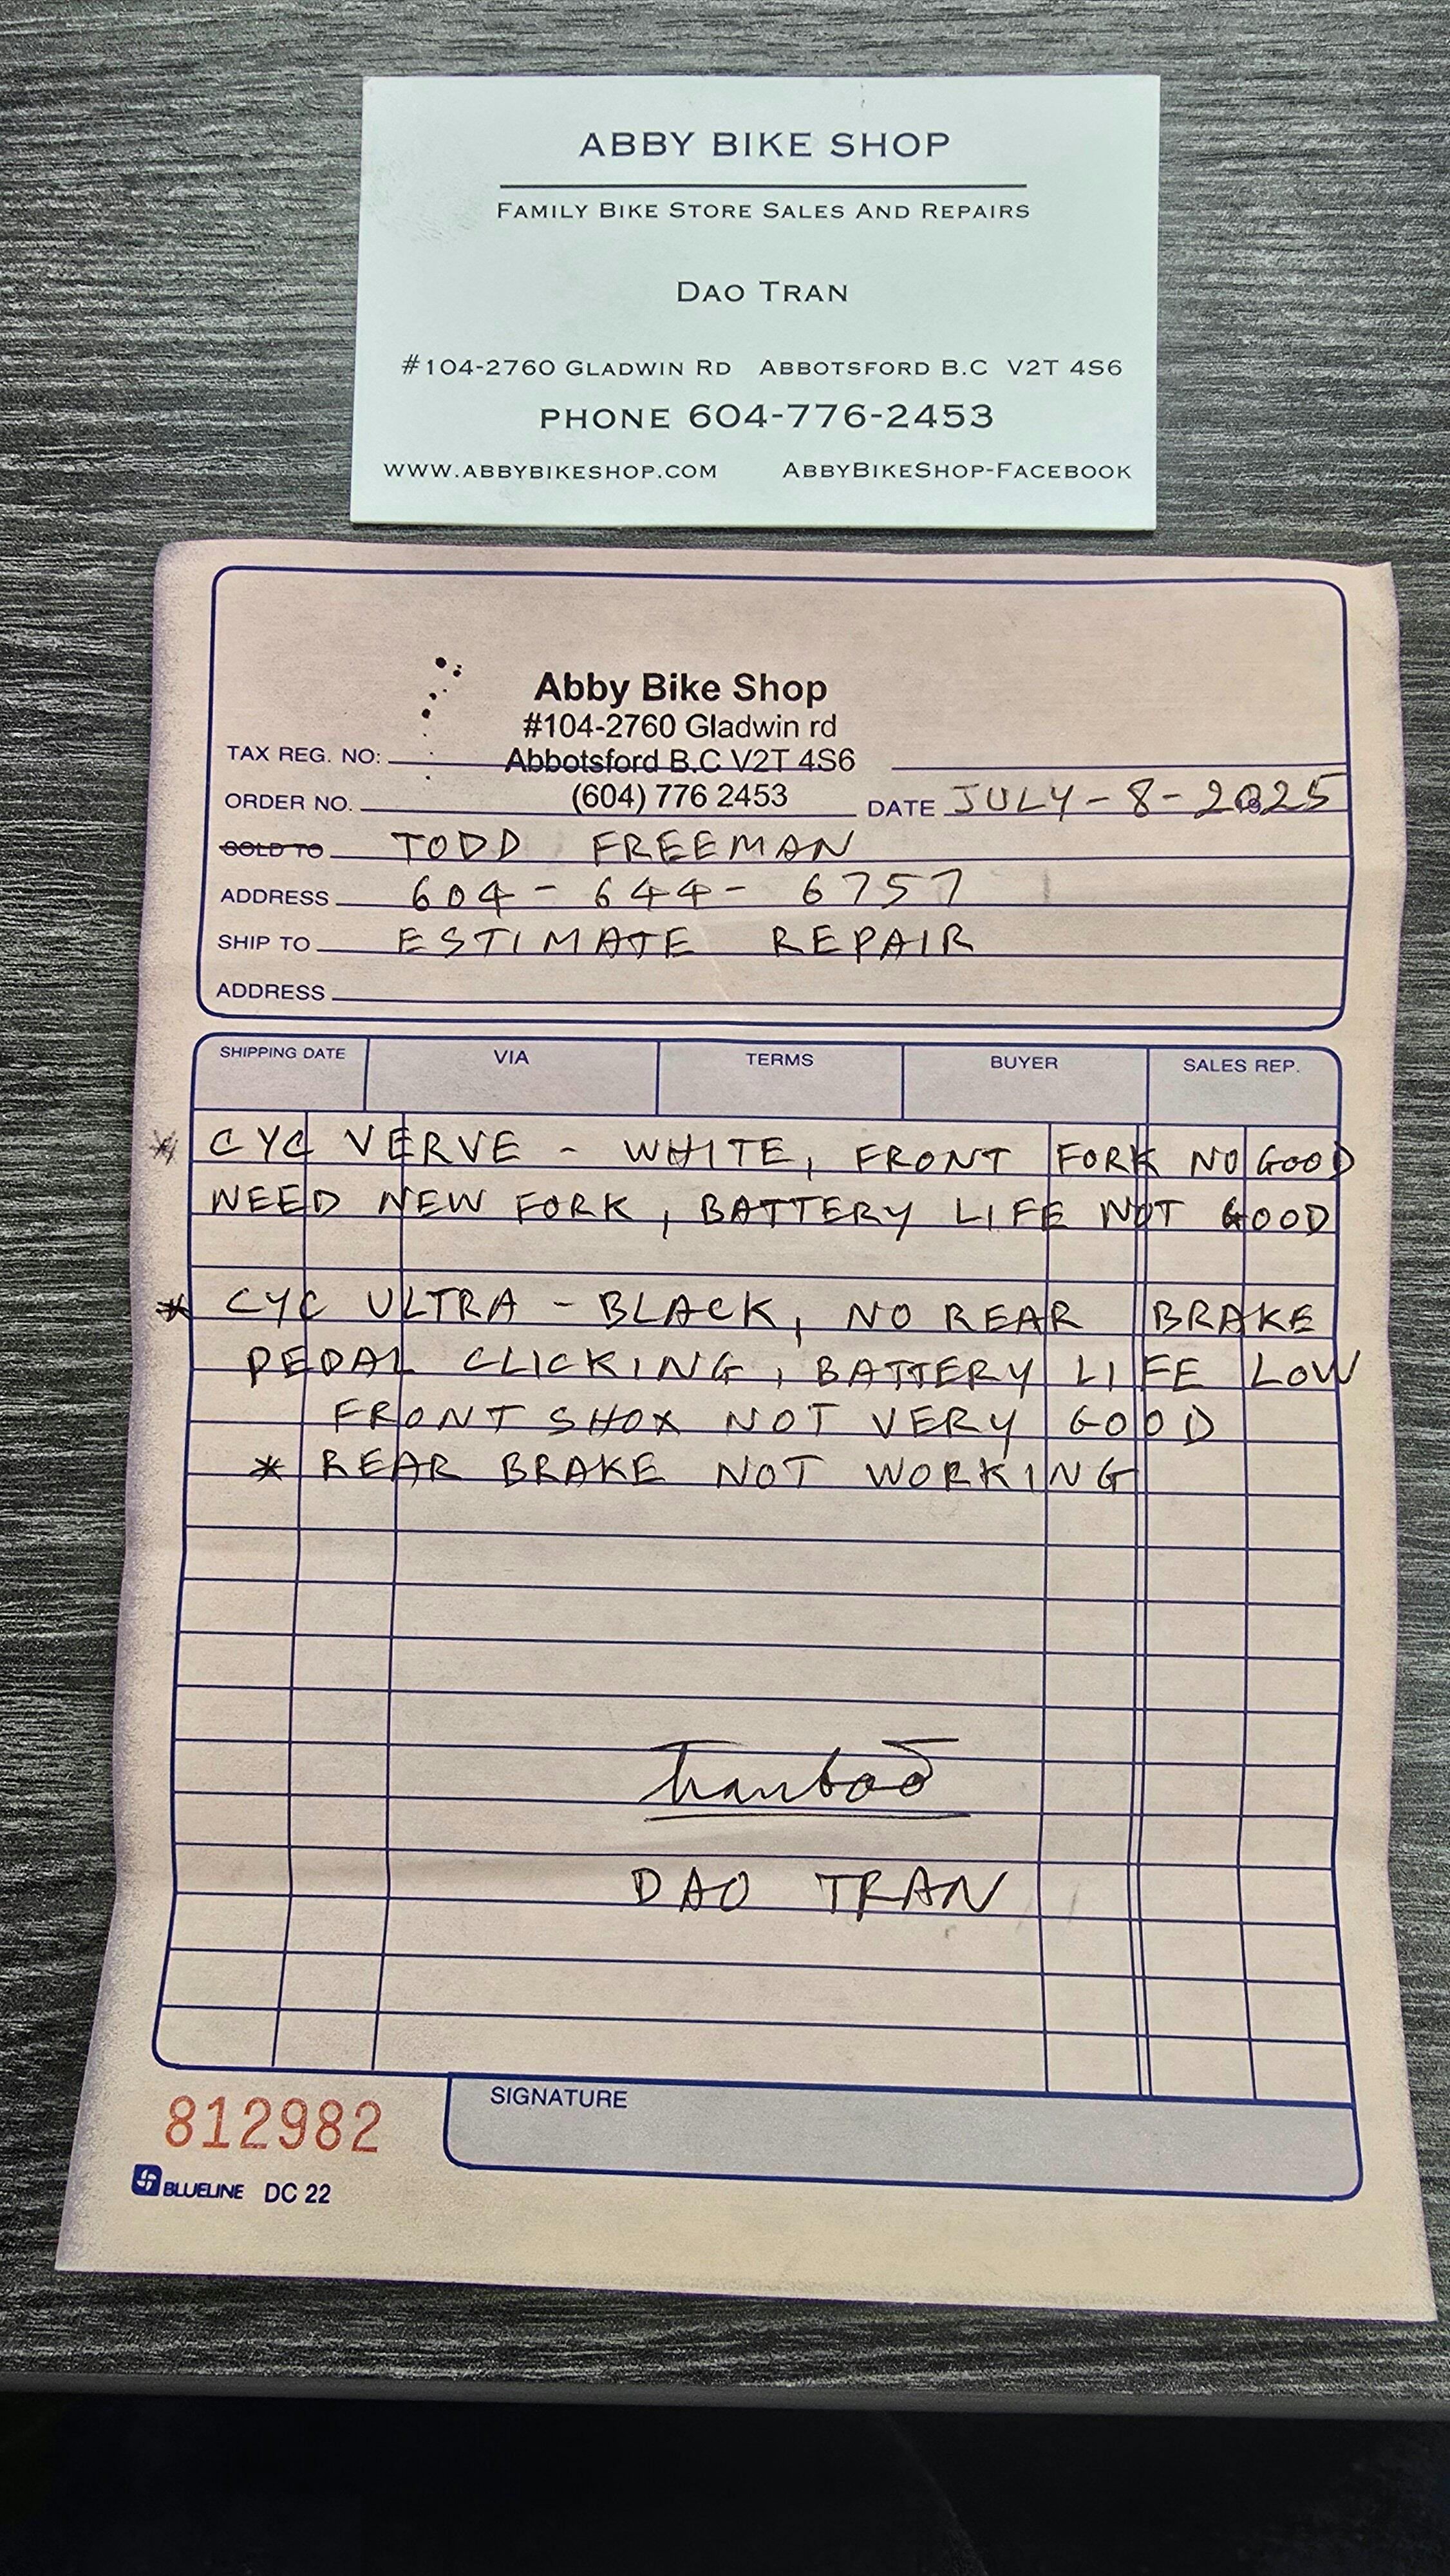 ABBY BIKE SHOP
FAMILY BIKE STORE SALES AND REPAIRS
DAO TRAN
#104-2760 GLADWIN RD ABBOTSFORD B.C V2T 4S6
PHONE 604-776-2453
WWW.ABBYBIKESHOP.COM ABBYBIKESHOP-FACEBOOK
Abby Bike Shop
#104-2760 Gladwin rd
TAX REG. NO: Abbotsford B.C V2T 4S6
ORDER NO. (604) 776 2453 DATE JULY-8-2025
SOLD TO TODD FREEMAN
ADDRESS 604-644-6757
SHIP TO ESTIMATE REPAIR
ADDRESS
SHIPPING DATE VIA TERMS BUYER SALES REP.
* CYC VERVE - WHITE, FRONT FORK NO GOOD
NEED NEW FORK, BATTERY LIFE NOT GOOD
* CYC ULTRA - BLACK, NO REAR BRAKE
PEDAL CLICKING, BATTERY LIFE LOW
FRONT SHOX NOT VERY GOOD
* REAR BRAKE NOT WORKING
DAO TRAN
812982
SIGNATURE
BLUELINE DC 22